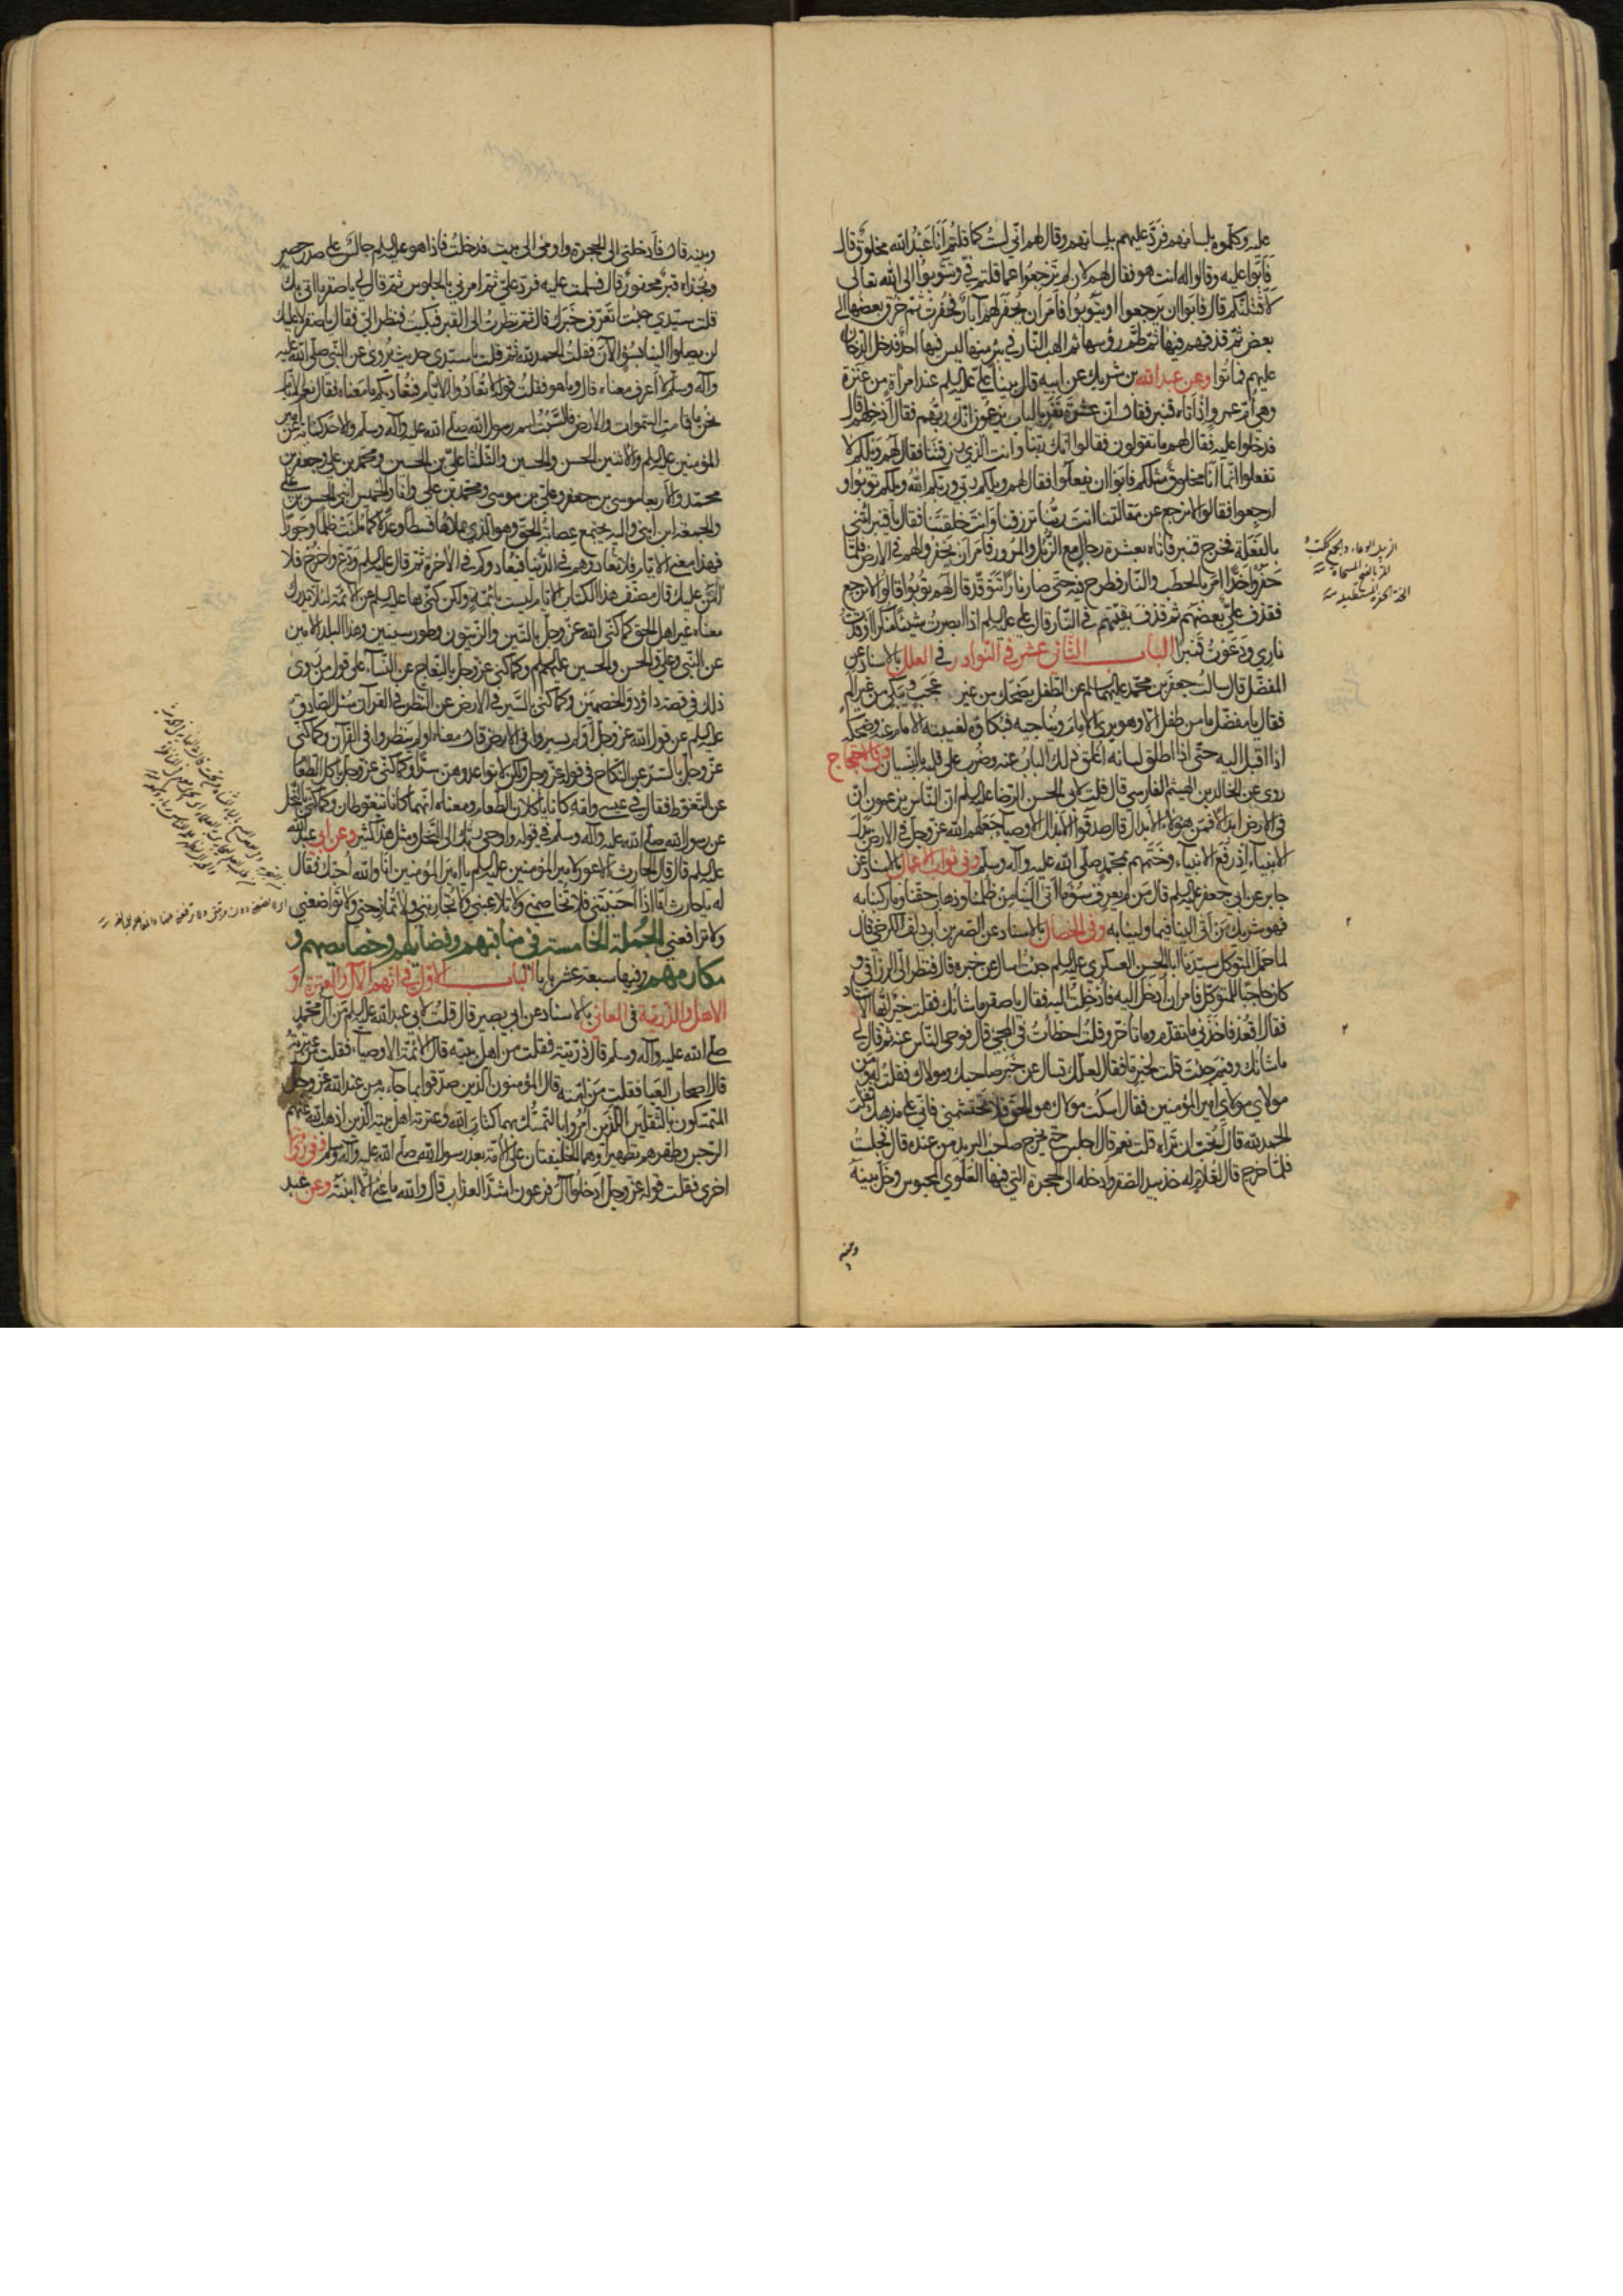 عليه وكلّموه بلسانهم فردّ عليهم بلسانهم وقال لهم انّي لست كما قلتم انا عبد الله مخلوق قال
فأبوا عليه وقالوا له انت هو فقال لهم لان لم ترجعوا عما قلتم فيّ وتتوبوا الى الله تعالى
لاقتلنّكم قال فابوا ان يرجعوا او يتوبوا فامر ان يحفر لهم آبار فحفرت ثم خرق بعضها الى
بعض ثمّ قذفهم فيها ثم طمّ رؤسها ثم الهب النار في بئر منها ليس فيها احد فدخل الدخان
عليهم فماتوا وعن عبد الله بن شريك عن ابيه قال بينا عليّ عليه السلم عند امراة من عنزة
وهي امّ عمر واذ اتاه قنبر فقال ان عشرة نفر بالباب يزعمون انك ربهم فقال ادخلهم قال
فدخلوا عليه فقال لهم ما تقولون فقالوا انك ربنا وانت الذي خلقتنا وانت الذي ترزقنا فقال لهم ويلكم لا
تفعلوا انّما انا مخلوق مثلكم فابوا ان يفعلوا فقال لهم ويلكم ربّي وربّكم الله ويلكم توبوا و
ارجعوا فقالوا لا نرجع عن مقالتنا انت ربنا ترزقنا وانت خلقتنا فقال يا قنبر ائتني
بالفعلة فخرج قنبر فاتاه بعشرة رجال مع الزبل والمرور فامر ان يحفروا لهم في الارض فلمّا
حفروا خدّا امر بالحطب والنار فطرح فيه حتى صار نارا تتوقد قال لهم توبوا قالوا لا نرجع
فقذف عليّ بعضهم ثم قذف بقيّتهم في النار قال علي عليه السلم اذا ابصرت شيئا منكرا اوقدت
ناري ودعوت قنبرا الباب الثاني عشر في النوادر في العلل بالاسناد عن
المفضّل قال سالت جعفر بن محمد عليهما السلم عن الطفل يضحك من غير عجب ويبكي من غير الم
فقال يا مفضّل ما من طفل الا وهو يرى الامام ويناجيه فبكاؤه لغيبته الامام عنه وضحكه
اذا اقبل اليه حتى اذا اطلق لسانه اغلق ذلك الباب عنه وضرب على قلبه بالنسيان وفي الاحتجاج
روى عن الخالد بن الهيثم الفارسي قال قلت لابي الحسن الرضا عليه السلم ان الناس يزعمون ان
في الارض ابدالا فمن هؤلاء الابدال قال صدقوا الابدال الاوصياء جعلهم الله عز وجل في الارض بدل
الانبياء اذ رفع الانبياء وختمهم بمحمد صلى الله عليه وآله وسلم وفي ثواب الاعمال بالاسناد عن
جابر عن ابي جعفر عليه السلم قال من لم يعرف سوء ما اتى الينا من ظلمنا وذهاب حقنا وما ركبنا به
فهو شريك من اتى الينا فيما ولينا به وفي الخصال بالاسناد عن الصقر بن ابي دلف الكرخي قال
لما حمل المتوكل سيدنا ابا الحسن العسكري عليه السلم جئت اسال عن خبره قال فنظر اليّ الرزاقي و
كان حاجبا للمتوكل فامر ان ادخل اليه فادخلت اليه فقال يا صقر ما شانك فقلت خير ايها الاستاد
فقال اقعد فاخذني ما تقدم وما تاخر وقلت اخطات في المجيء قال فوحى الناس عنه ثم قال لي
ما شانك وفيم جئت قلت لخبر ما فقال لعلك تسال عن خبر صاحبك ومولاك فقلت له ومن
مولاي مولاي امير المؤمنين فقال اسكت مولاك هو الحق فلا تحتشمني فاني على مذهبك فقلت
الحمد لله قال اتحب ان تراه قلت نعم قال اجلس حتى يخرج صاحب البريد من عنده قال فجلست
فلمّا خرج قال لغلام له خذ بيد الصقر وادخله الى الحجرة التي فيها العلوي المحبوس وخل بينه
وبينه
وبينه قال فادخلني الى الحجرة واومى الى بيت فدخلت فاذا هو عليه السلم جالس على صدر حصير
وبحذاه قبر محفور قال فسلمت عليه فردّ عليّ ثم امرني بالجلوس ثم قال لي يا صقر ما اتى بك
قلت سيّدي جئت اتعرّف خبرك قال ثم نظرت الى القبر فبكيت فنظر اليّ فقال يا صقر لا عليك
لن يصلوا الينا بسوء الآن فقلت الحمد لله ثم قلت يا سيدي حديث يروى عن النبي صلى الله عليه
وآله وسلم لا اعرف معناه قال وما هو فقلت قوله لا تعادوا الايام فتعاديكم ما معناه فقال نعم الايام
نحن ما قامت السموات والارض فالسبت اسم رسول الله صلى الله عليه وآله وسلم والاحد كناية عن امير
المؤمنين عليه السلم والاثنين الحسن والحسين والثلثا علي بن الحسين ومحمد بن علي وجعفر بن
محمد والاربعا موسى بن جعفر وعلي بن موسى ومحمد بن علي وانا والخميس ابني الحسن بن علي
والجمعة ابن ابني واليه يجتمع عصابة الحق وهو الذي يملاها قسطا وعدلا كما ملئت ظلما وجورا
فهذا معنى الايام فلا تعادوهم في الدنيا فيعادوكم في الآخرة ثم قال عليه السلم ودّع واخرج فلا
آمن عليك قال مصنف هذا الكتاب الايام ليست بائمّة ولكن كنّى بها عليه السلم عن الائمة لئلا يدرك
معناه غير اهل الحق كما كنى الله عز وجل بالتين والزيتون وطور سينين وهذا البلد الامين
عن النبي وعلي والحسن والحسين عليهم السلم وكما كنى عز وجل بالنعاج عن النساء على قول من روى
ذلك في قصة داود والخصمين وكما كنى بالسير في الارض عن النظر في القرآن سئل الصادق
عليه السلم عن قول الله عز وجل اولم يسيروا في الارض قال معناه اولم ينظروا في القرآن وكما كنى
عز وجل بالسرّ عن النكاح في قوله عز وجل ولكن لا تواعدوهن سرا وكما كنى عز وجل باكل الطعام
عن التغوط فقال في عيسى وامّه كانا ياكلان الطعام ومعناه انهما كانا يتغوطان وكما كنى بالنحل
عن رسول الله صلى الله عليه وآله وسلم في قوله واوحى ربك الى النحل ومثل هذا كثير وعن ابي عبد الله
عليه السلم قال قال الحارث الاعور لامير المؤمنين عليه السلم يا امير المؤمنين انا والله احبك فقال
له يا حارث اما اذا احببتني فلا تخاصمني ولا تلاعبني ولا تجاريني ولا تمازحني ولا تواضعني
ولا ترافعني الجملة الخامسة في مناقبهم وفضايلهم وخصايصهم و
مكارمهم وفيها سبعة عشر بابا الباب الاول في انهم الآل والعترة و
الاهل والذريّة في المعاني بالاسناد عن ابي بصير قال قلت لابي عبد الله عليه السلم من آل محمد
صلى الله عليه وآله وسلم قال ذريّته فقلت من اهل بيته قال الائمة الاوصياء فقلت من عترته
قال اصحاب العبا فقلت من امّته قال المؤمنون الذين صدّقوا بما جاء به من عند الله عز وجل
المتمسكون بالثقلين الذين امروا بالتمسك بهما كتاب الله وعترته اهل بيته الذين اذهب الله عنهم
الرجس وطهرهم تطهيرا وهما الخليفتان على الامّة بعد رسول الله صلى الله عليه وآله وسلم وفي رواية
اخرى فقلت قوله عز وجل ادخلوا آل فرعون اشد العذاب قال والله ما عنى الا ابنته وعن عبد